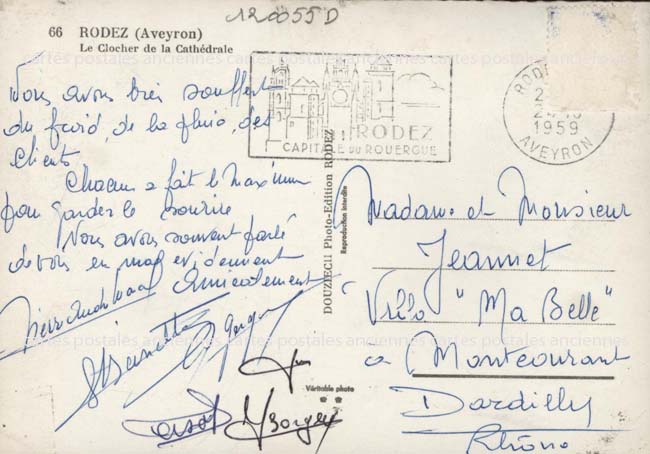 120055D
66 RODEZ (Aveyron)
Le Clocher de la Cathédrale
cartes postales anciennes cartes postales anciennes
Nous avons bien souffert
du froid, de la pluie, des
clients.
Chacun a fait le maximum
pour garder le sourire
Nous avons souvent parlé
de vous en mal evidemment
Amicalement
RODEZ
CAPITALE DU ROUERGUE
1959
AVEYRON
DOUZIECH Photo-Edition RODEZ
Reproduction interdite
Madame et Monsieur
Jeannet
Villa "Ma Belle"
à Montcourant
Dardilly
Rhône
cartes postales anciennes cartes postales anciennes
Véritable photo